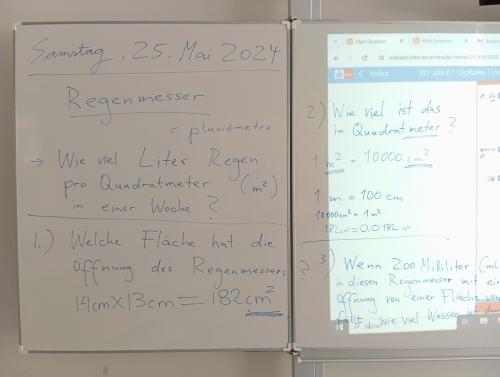 Samstag, 25. Mai 2024
Regenmesser
= pluviómetro
→ Wie viel Liter Regen
pro Quadratmeter (m²)
in einer Woche?
1.) Welche Fläche hat die
Öffnung des Regenmessers?
14cm×13cm=182cm²
Index
2) Wie viel ist das
in Quadratmeter?
1 m² = 10000 cm²
1 m = 100 cm
10000cm² = 1 m²
182cm²=0.0182 m²
3) Wenn 200 Milliliter (ml
in diesen Regenmesser mit ein
Öffnung von einer Fläche von
fällt, wie viel Wasser ist